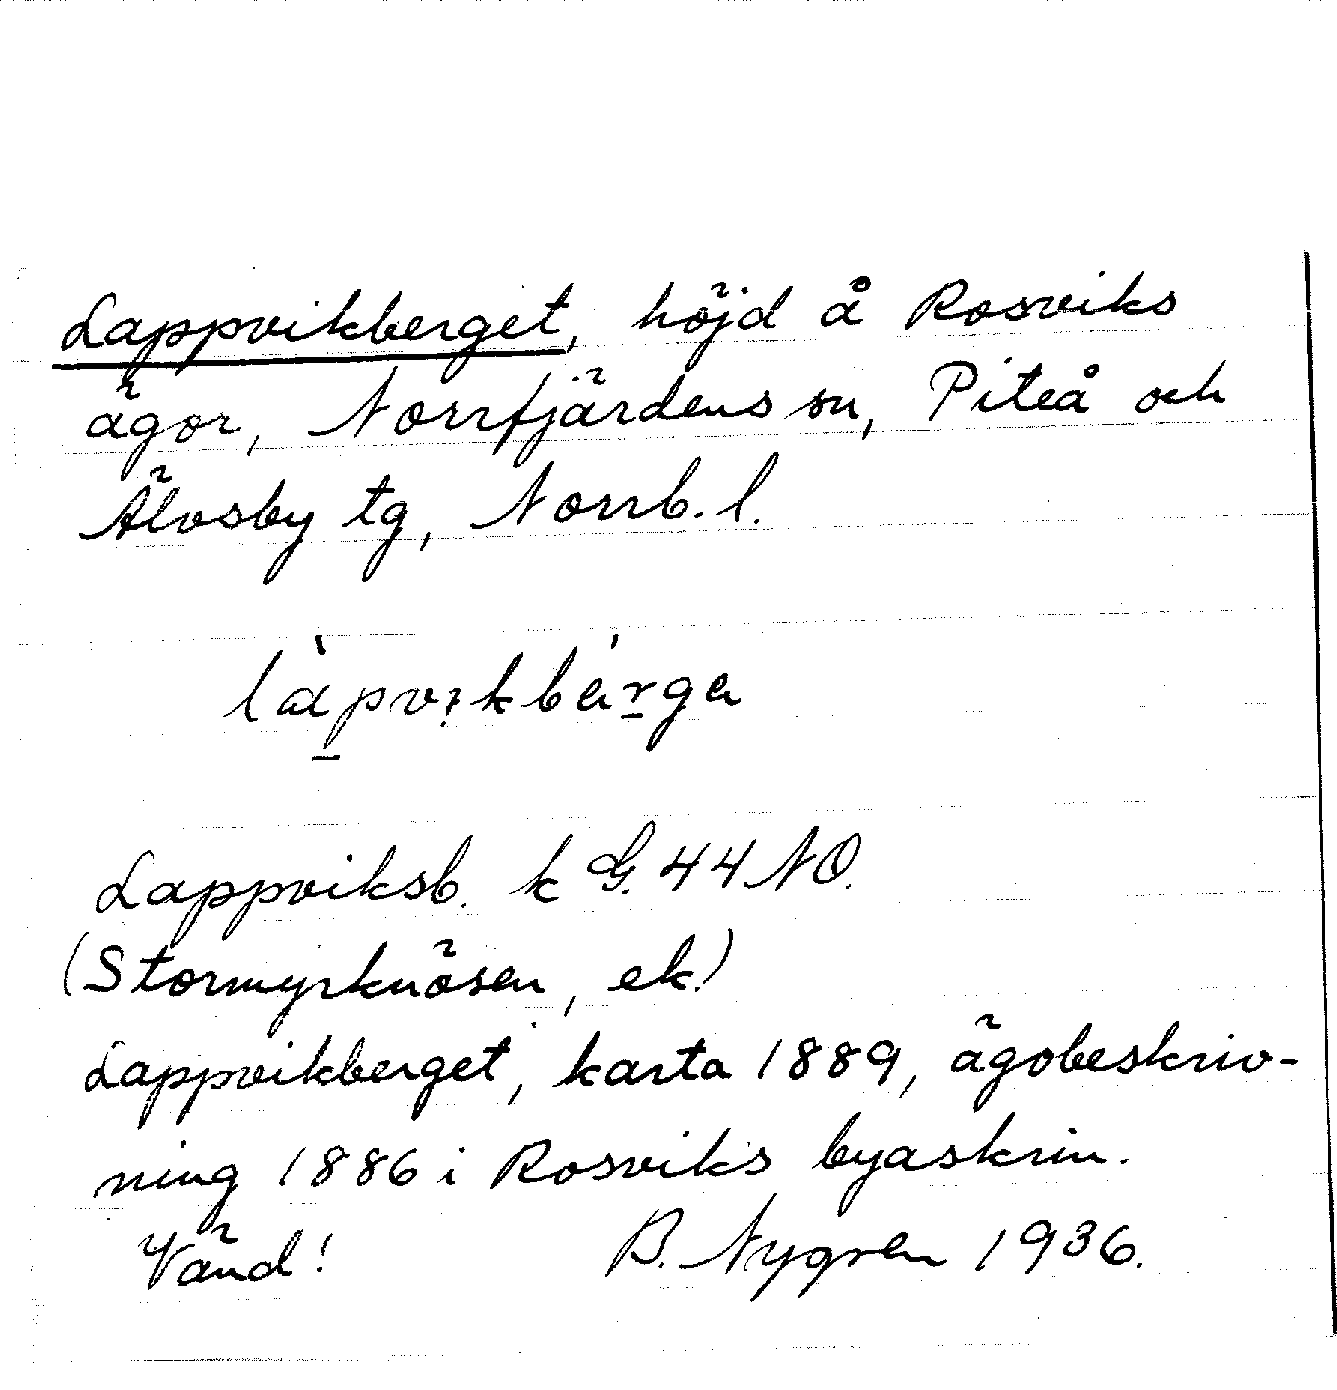 Lappvikberget, höjd å Rosviks
ägor, Norrfjärdens sn, Piteå och
Älvsby tg, Norrb. l.
Lappviksb. k G. 44 NO.
(Stormyrknösen, ek.)
Lappvikberget, karta 1889, ägobeskriv-
ning 1886 i Rosviks byaskrin.
Vänd!
B. Nygren 1936.